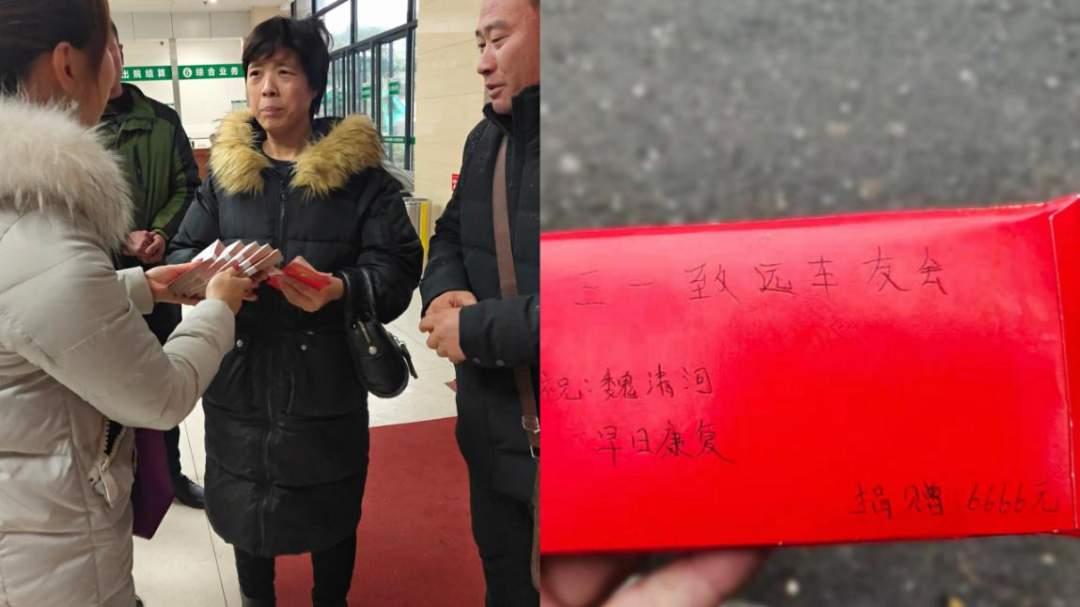 出院结算
6 综合业务
三一致远车友会
祝:魏清河
早日康复
捐赠:6666元